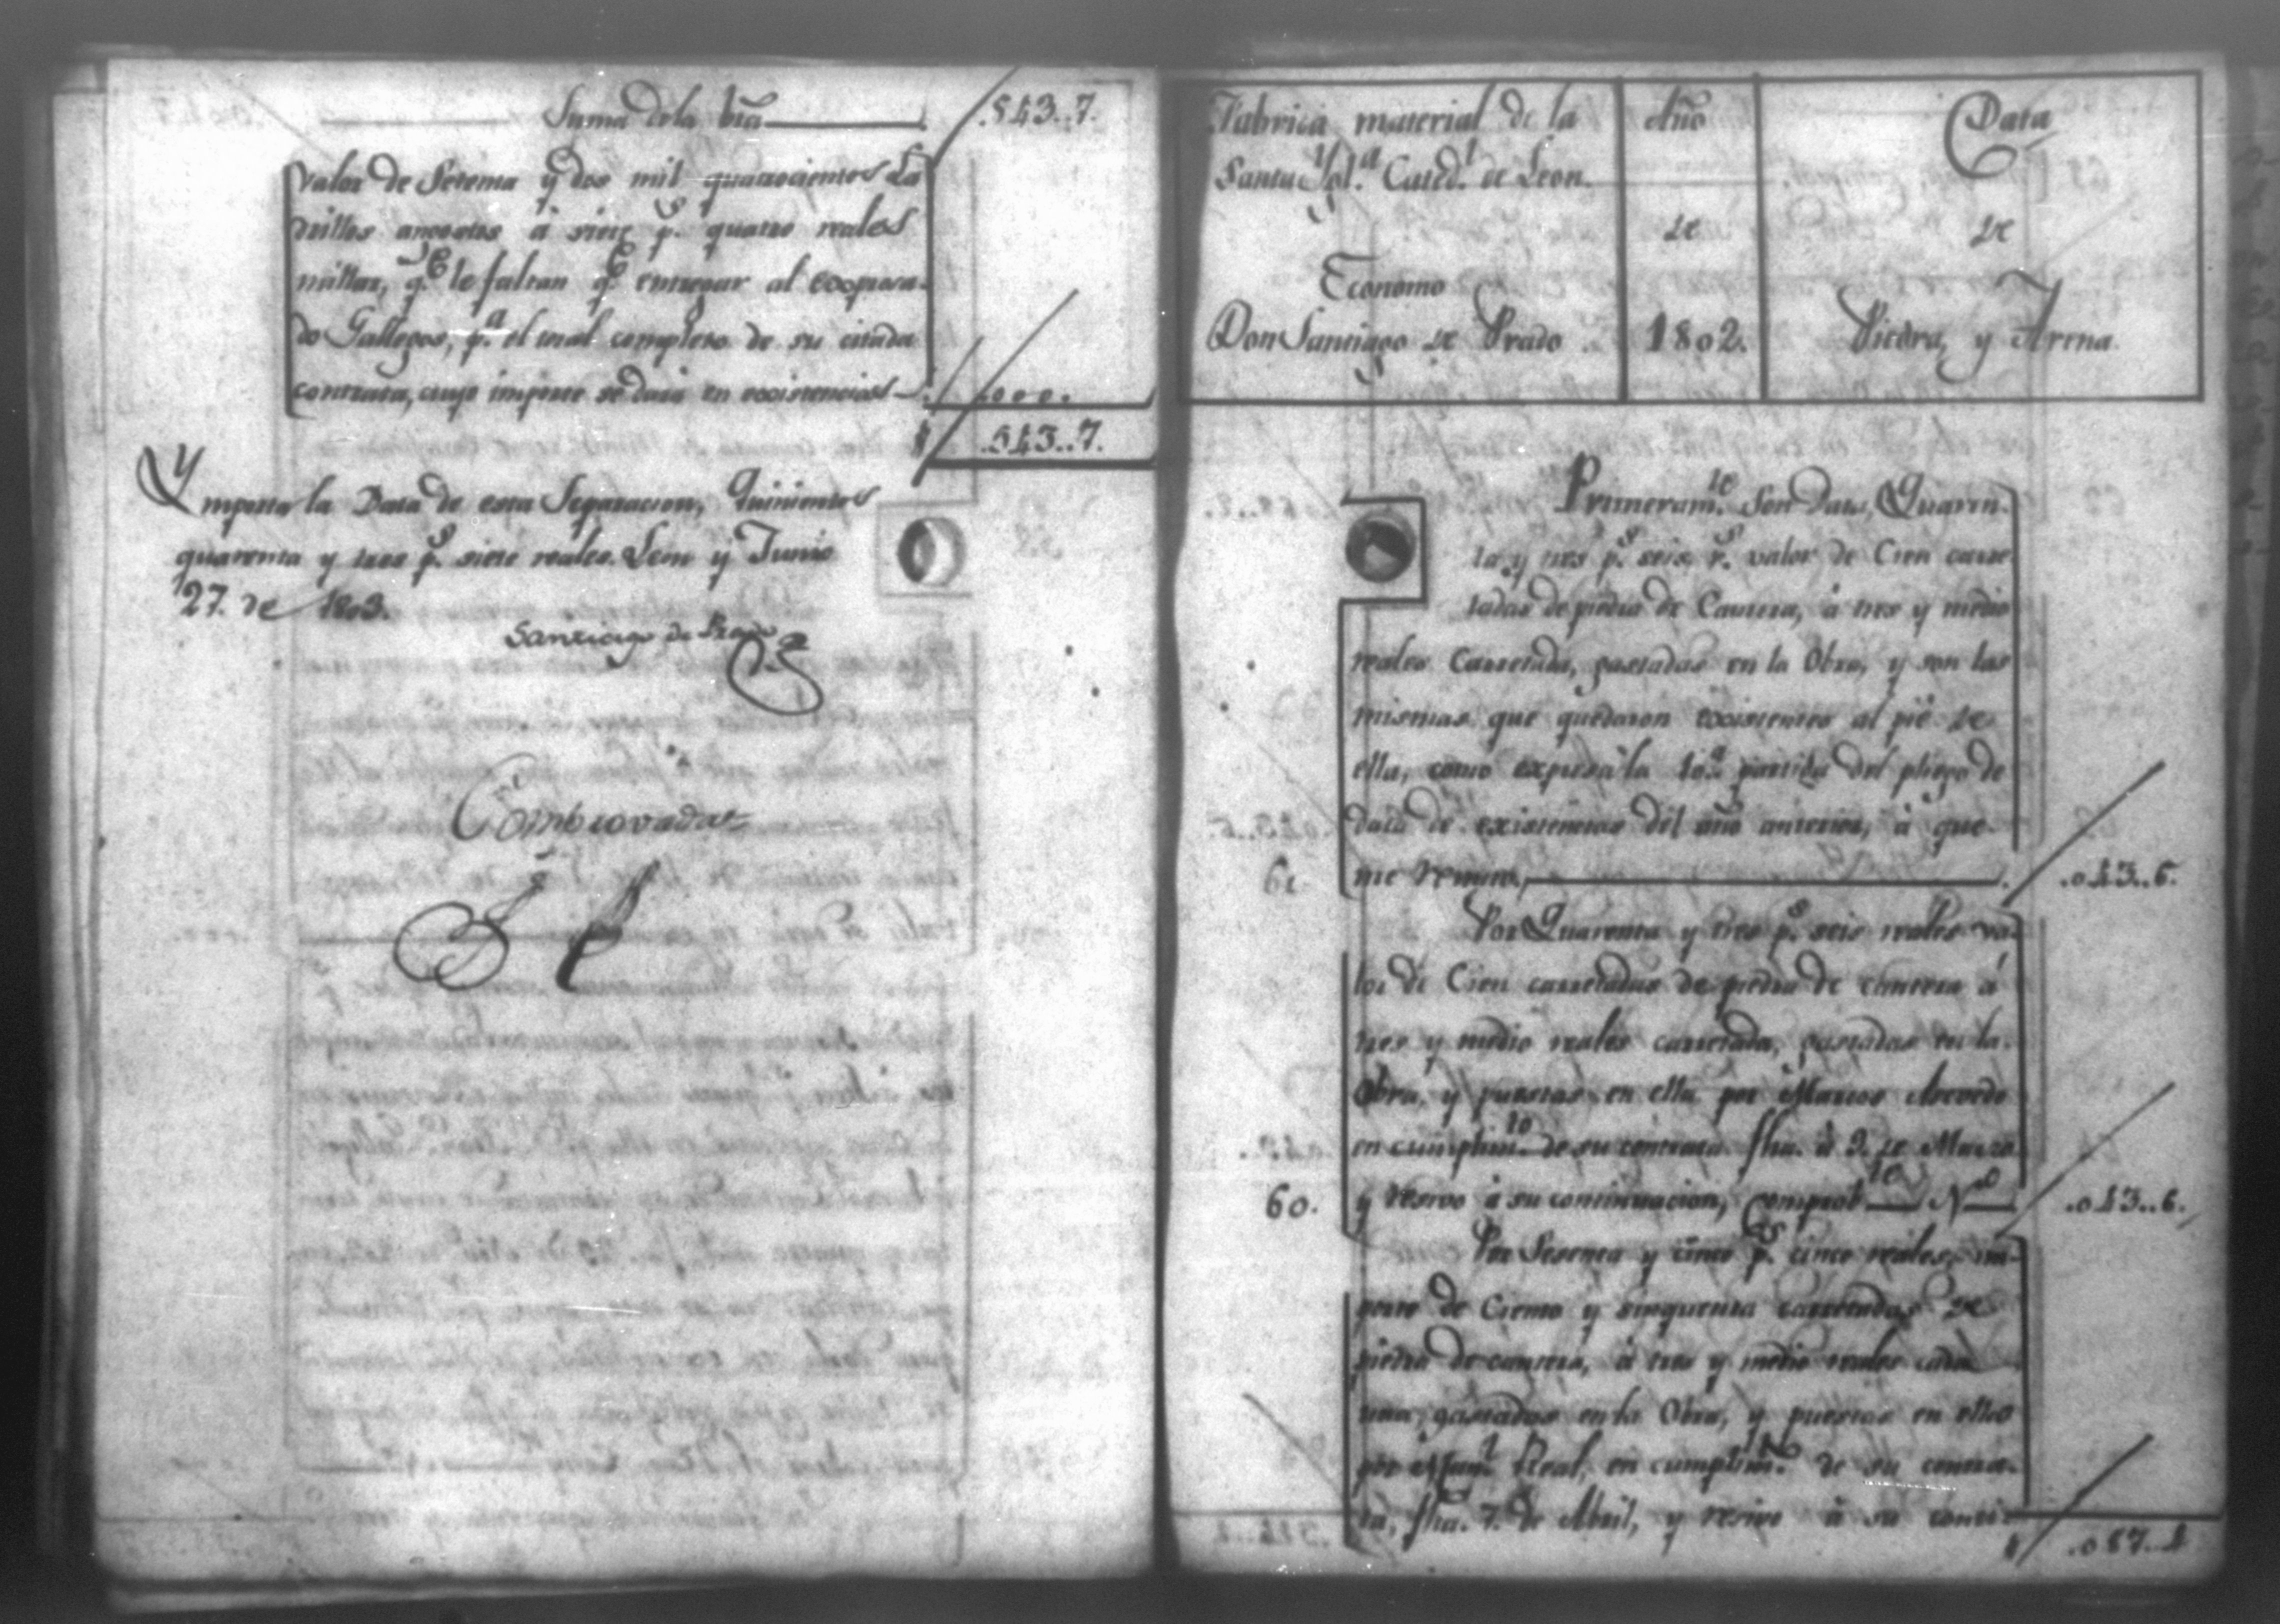 Suma dela bta .543..7.
valor de Setenta y dos mil quatrocientos La
drillos angostos á siete p.s quatro reales
millar, q.e le faltan q.e entregar al expresa-
do Gallegos, p.a el total completo de su citada
contrata, cuyo importe se data en existencias .000.
.543..7.
Ymporta la Data de esta Separacion, Quinientos
quarenta y tres p.s siete reales. Leon y Junio
27. de 1803.
Santiago de Prado
Combrovadas
Fabrica material de la
Santa Ygl.a Cated.l de Leon.
Economo
Don Santiago de Prado
Año
de
1802.
Data
de
Piedra, y Arena.
Primeram.te Son Data, Quaren-
ta y tres p.s seis r.s valor de Cien carre
tadas de piedra de Cantera, á tres y medio
reales Carretada, gastadas en la Obra, y son las
mismas que quedaron existentes al pié de
ella, como expresa la 10.a partida del pliego de
data de existencias del año anterior, á que
61. me remito, .043..6.
Por Quarenta y tres p.s seis reales va-
lor de Cien carretadas de piedra de cantera á
tres y medio reales carretada, gastadas en la
Obra, y puestas en ella por Marcos Acevedo
en cumplim.to de su contrata fha. á 9. de Marzo
60. y resivo á su continuacion, comprob.te N.o .043..6.
Por Sesenta y cinco p.s cinco reales, im-
porte de Ciento y sinquenta carretadas de
piedra de cantera, á tres y medio reales cada
una, gastadas en la Obra, y puestas en ella
por Man.l Real, en cumplim.to de su contra-
ta, fha. 7. de Abril, y resivo á su conti-
.087..4